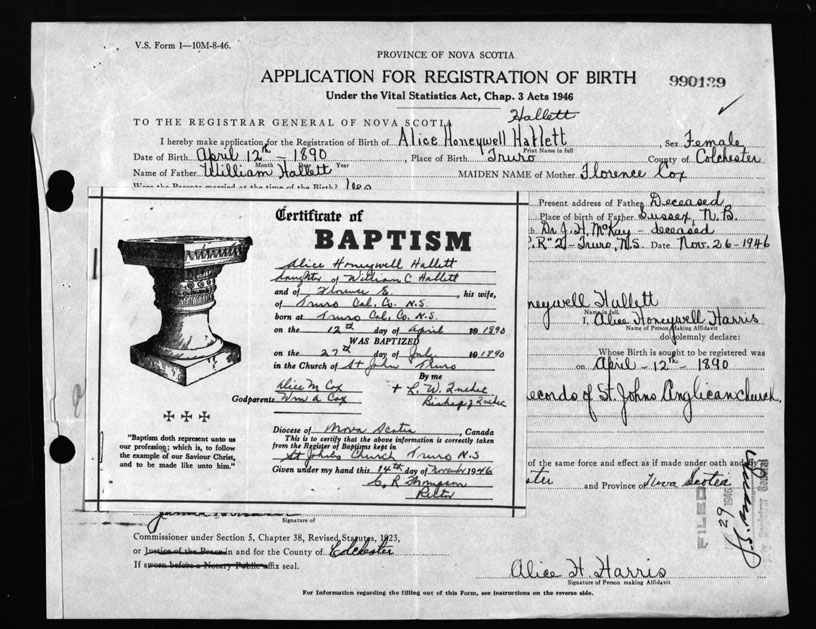 V.S. Form 1—10M-8-46.
PROVINCE OF NOVA SCOTIA
APPLICATION FOR REGISTRATION OF BIRTH 990139
Under the Vital Statistics Act, Chap. 3 Acts 1946
Hallett
TO THE REGISTRAR GENERAL OF NOVA SCOTIA
I hereby make application for the Registration of Birth of Alice Honeywell Hallett, Sex Female
Print Name in full
Date of Birth April 12th - 1890, Place of Birth Truro County of Colchester
Month Day Year
Name of Father William Hallett MAIDEN NAME of Mother Florence Cox
Were the Parents married at the time of the Birth? Yes
Present address of Father Deceased
Place of birth of Father Sussex, N.B.
Dr. J. H. McKay - deceased
Truro, N.S. Date Nov. 26-1946
Certificate of
BAPTISM
Alice Honeywell Hallett
Daughter of William C Hallett
and of Florence E., his wife,
of Truro Col. Co. N.S.
born at Truro Col. Co. N.S.
on the 12th day of April 1890
WAS BAPTIZED
on the 27th day of July 1890
in the Church of St John Truro
By me
Alice M Cox
Godparents Wm A Cox
+ L. W. Quebec
Bishop of Quebec
Diocese of Nova Scotia, Canada
This is to certify that the above information is correctly taken
from the Register of Baptisms kept in
St Johns Church Truro N.S
Given under my hand this 14th day of November 1946
C. R. Thompson
Rector
"Baptism doth represent unto us
our profession; which is, to follow
the example of our Saviour Christ,
and to be made like unto him."
neywell Hallett
Name in full
I, Alice Honeywell Harris
Name of Person Making Affidavit
do solemnly declare:
Whose Birth is sought to be registered was
on April - 12th - 1890
ecords of St. Johns Anglican church.
of the same force and effect as if made under oath and by
ster and Province of Nova Scotia
FILED
29
1946
Registrar General
Signature of
Commissioner under Section 5, Chapter 38, Revised Statutes, 1923,
or Justice of the Peace in and for the County of Colchester
If sworn before a Notary Public affix seal.
Alice H. Harris
Signature of Person making Affidavit
For Information regarding the filling out of this Form, see instructions on the reverse side.